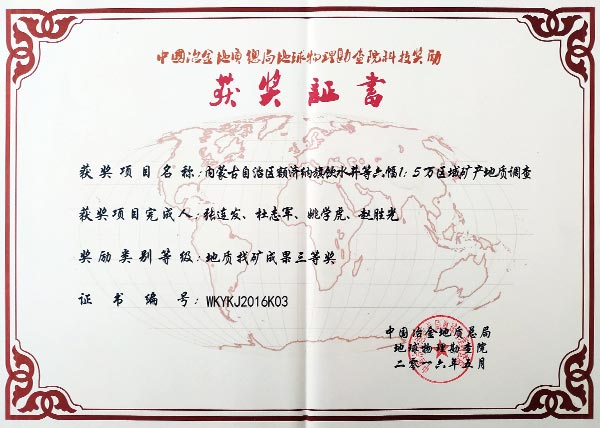 中國冶金地质總局地球物理勘查院科技奖励
获奖証書
获奖项目名称:内蒙古自治区额济纳旗饮水井等六幅1:5万区域矿产地质调查
获奖项目完成人:张连发、杜志军、姚学虎、赵胜光
奖励类别等级:地质找矿成果三等奖
证书编号:WKYKJ2016K03
中国冶金地质总局
地球物理勘查院
二零一六年五月